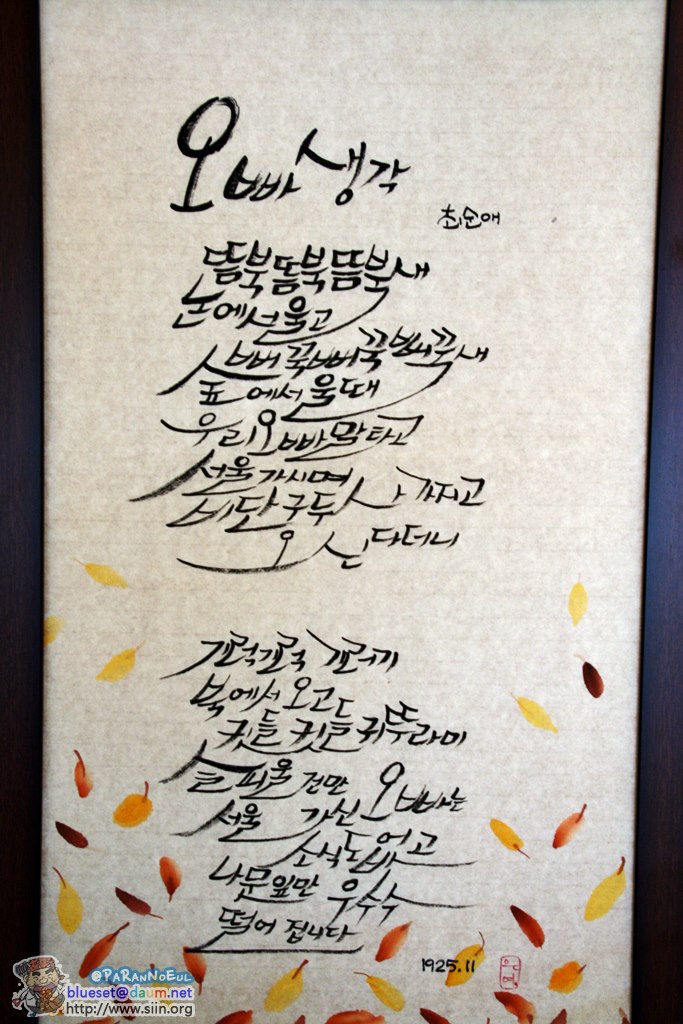 오빠생각
최순애
뜸북뜸북뜸북새
논에서울고
뻐꾹뻐꾹뻐꾹새
숲에서울때
우리오빠말타고
서울가시며
비단구두 사가지고
오신다더니
기럭기럭 기러기
북에서오고
귓들귓들귀뚜라미
슬피울건만 오빠는
서울 가신
소식도 없고
나뭇잎만 우수수
떨어집니다
1925.11
@PARANNOEUL
blueset@daum.net
http://www.siin.org